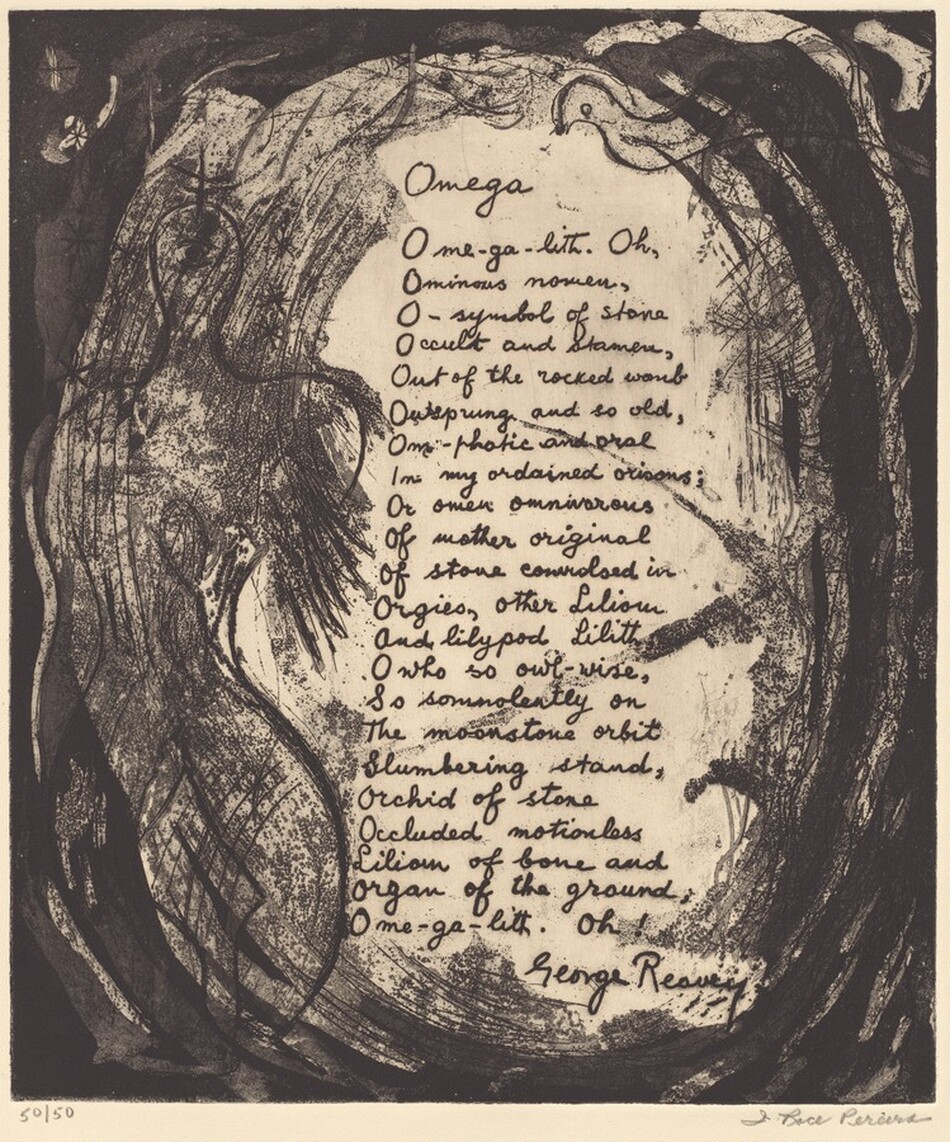 Omega
O me-ga-lith. Oh,
Ominous nomen,
O - symbol of stone
Occult and stamen,
Out of the rocked womb
Outsprung and so old,
Om-phatic and oral
In my ordained orisons;
Or omen omnivorous
Of mother original
Of stone convulsed in
Orgies, other Liliom
And lilypod Lilith
O who so owl-wise,
So somnolently on
The moonstone orbit
Slumbering stand,
Orchid of stone
Occluded motionless
Liliom of bone and
Organ of the ground;
O me-ga-lith. Oh!
George Reavey
50/50 I. Rice Pereira